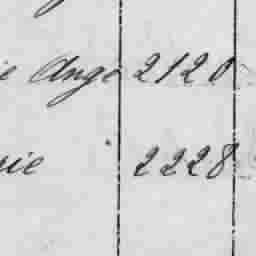 ie Ange 2120
rie 2228